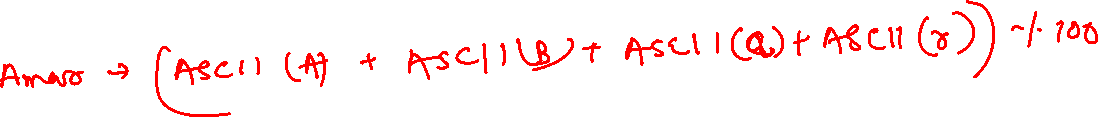 Amar → (ASCII (A) + ASCII (B) + ASCII (a) + ASCII (r)) % 100